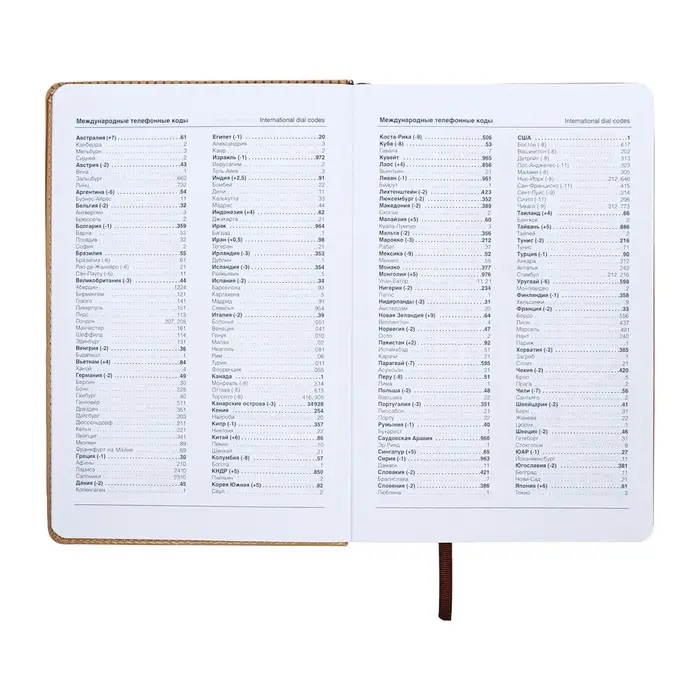 Международные телефонные коды
International dial codes
Австралия (+7) 61
Канберра 2
Мельбурн 3
Сидней 2
Австрия (-2) 43
Вена 1
Зальцбург 662
Линц 732
Аргентина (-6) 54
Буэнос-Айрес 11
Бельгия (-2) 32
Антверпен 3
Брюссель 2
Болгария (-1) 359
Варна 52
Пловдив 32
София 2
Бразилия 55
Бразилиа (-6) 61
Рио-де-Жанейро (-6) 21
Сан-Паулу (-6) 11
Великобритания (-3) 44
Абердин 1224
Бирмингем 121
Глазго 141
Ливерпуль 151
Лидс 113
Лондон 207, 208
Манчестер 161
Шеффилд 114
Эдинбург 131
Венгрия (-2) 36
Будапешт 1
Вьетнам (+4) 84
Ханой 4
Германия (-2) 49
Берлин 30
Бонн 228
Гамбург 40
Ганновер 511
Дрезден 351
Дуйсбург 203
Дюссельдорф 211
Кельн 221
Лейпциг 341
Мюнхен 89
Франкфурт на Майне 69
Греция (-1) 30
Афины 210
Лариса 2410
Салоники 2310
Дания (-2) 45
Копенгаген 1
Египет (-1) 20
Александрия 3
Каир 2
Израиль (-1) 972
Иерусалим 2
Тель-Авив 3
Индия (+2,5) 91
Бомбей 22
Дели 11
Калькутта 33
Мадрас 44
Индонезия (+4) 62
Джакарта 21
Ирак 964
Багдад 1
Иран (+0,5) 98
Тегеран 21
Ирландия (-3) 353
Дублин 1
Исландия (-3) 354
Рейкьявик 5
Испания (-2) 34
Барселона 93
Картахена 5
Мадрид 91
Севилья 954
Италия (-2) 39
Болонья 051
Венеция 041
Генуя 010
Милан 02
Неаполь 081
Рим 06
Турин 011
Флоренция 055
Канада 1
Монреаль (-8) 514
Оттава (-8) 613
Торонто (-8) 416, 905
Канарские острова (-3) 34928
Кения 254
Найроби 20
Кипр (-1) 357
Никосия 22
Китай (+5) 86
Пекин 10
Шанхай 21
Колумбия (-8) 57
Богота 1
КНДР (+5) 850
Пхеньян 2
Корея Южная (+5) 82
Сеул 2
Международные телефонные коды
International dial codes
Коста-Рика (-9) 506
Куба (-8) 53
Гавана 7
Кувейт 965
Лаос (+4) 856
Вьентьян 21
Ливан (-1) 961
Бейрут 1
Лихтенштейн (-2) 423
Люксембург (-2) 352
Македония (-2) 389
Скопье 2
Малайзия (+5) 60
Куала-Лумпур 3
Мальта (-2) 356
Марокко (-3) 212
Рабат 37
Мексика (-9) 52
Мехико 55
Монако 377
Монголия (+5) 976
Улан-Батор 11, 21
Нигерия (-2) 234
Лагос 1
Нидерланды (-2) 31
Амстердам 20
Новая Зеландия (+9) 64
Веллингтон 4
Норвегия (-2) 47
Осло 2
Пакистан (+2) 92
Исламабад 51
Карачи 21
Парагвай (-7) 595
Асунсьон 21
Перу (-8) 51
Лима 1
Польша (-2) 48
Варшава 22
Португалия (-3) 351
Лиссабон 21
Порту 22
Румыния (-1) 40
Бухарест 1
Саудовская Аравия 966
Эр-Рияд 1
Сингапур (+5) 65
Сирия (-1) 963
Дамаск 11
Словакия (-2) 421
Братислава 7
Словения (-2) 386
Любляна 1
США 1
Бостон (-8) 617
Вашингтон (-8) 202
Детройт (-8) 313
Лос-Анджелес (-11) 323
Майами (-8) 305
Нью-Йорк (-8) 212, 646
Сан-Франциско (-11) 415
Сент-Луис (-9) 314
Сиэтл (-11) 206
Чикаго (-9) 312, 773
Таиланд (+4) 66
Бангкок 2
Тайвань (+5) 886
Тайпей 2
Тунис (-2) 216
Тунис 71
Турция (-1) 90
Анкара 312
Анталья 242
Стамбул 212, 216
Уругвай (-6) 598
Монтевидео 2
Финляндия (-1) 358
Хельсинки 9
Франция (-2) 33
Бордо 556
Лион 437
Марсель 491
Нант 240
Париж 1
Хорватия (-2) 385
Загреб 1
Сплит 21
Чехия (-2) 420
Брно 5
Прага 2
Чили (-7) 56
Сантьяго 2
Швейцария (-2) 41
Берн 31
Женева 22
Цюрих 1
Швеция (-2) 46
Гетеборг 31
Стокгольм 8
ЮАР (-1) 27
Йоханнесбург 11
Югославия (-2) 381
Белград 11
Нови-Сад 21
Япония (+6) 81
Токио 3